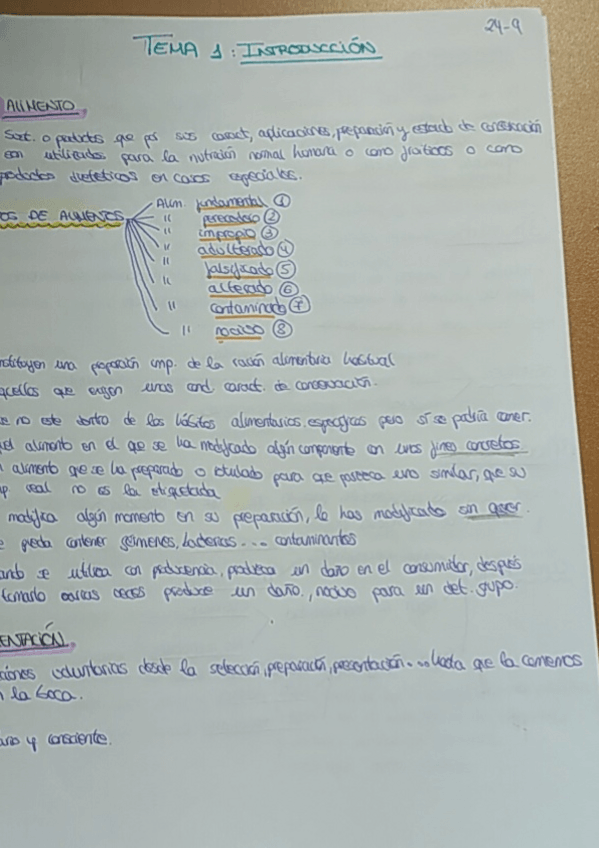 24-9
TEMA 1: INTRODUCCIÓN
ALIMENTO
Sust. o productos que por sus caract, aplicaciones, preparación y estado de conservación
son utilizados para la nutrición normal humana o como fruiticos o como
productos dietéticos en casos especiales.
OS DE ALIMENTOS
Alim. fundamental 1
" perecedero 2
" impropio 3
" adulterado 4
" falsificado 5
" alterado 6
" contaminado 7
" nocivo 8
nstituyen una proporción imp. de la ración alimentaria habitual
quellos que exigen unas cond caract. de conservación.
e no este dentro de los hábitos alimentarios específicos pero sí se podría comer.
el alimento en el que se ha modificado algún componente con unos fines concretos
alimento que se ha preparado o rotulado para que parezca uno similar, que su
real no es la etiquetada
modifica algún momento en su preparación, lo has modificado sin querer.
e pueda contener gérmenes, bacterias... contaminantes
ando se utiliza con prudencia, produzca un daño en el consumidor, después
tomarlo varias veces produce un daño, nocivo para un det. grupo.
ENTACIÓN
ciones voluntarias desde la selección, preparación, presentación... hasta que la comemos
la boca.
ario y consciente.